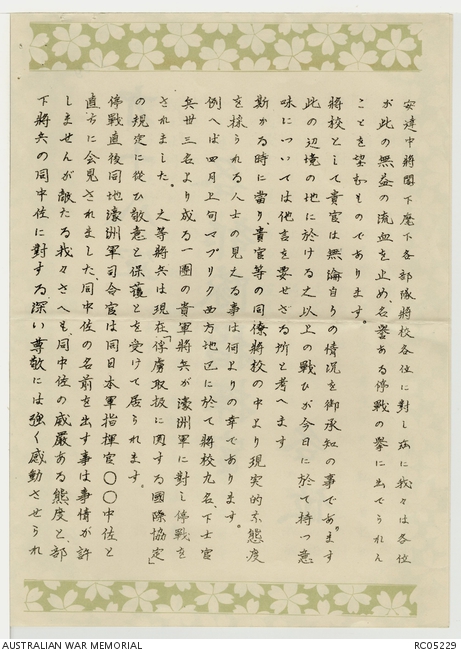 安達中將閣下麾下各部隊將校各位に對し茲に我々は各位
が此の無益の流血を止め、名譽ある停戰の擧に出でられん
ことを望むものであります。
將校として貴官は無論自りの情況を御承知の事であります
此の辺境の地に於ける之以上の戰ひが今日に於て持つ意
味については他言を要せざる所と考へます
斯かる時に當り、貴官等の同僚將校の中より現実的な態度
を採られる人士の見える事は何よりの幸であります。
例へば四月上旬マプリク西方地区に於て將校九名、下士官
兵卅三名より成る一團の貴軍將兵が濠洲軍に對し停戰を
されました。之等將兵は現在「俘虜取扱に関する國際協定」
の規定に從ひ敬意と保護とを受けて居られます。
停戰直後同地濠洲軍司令官は同日本軍指揮官〇〇中佐と
直ちに会見されました、同中佐の名前を出す事は事情が許
しませんが敵たる我々さへも同中佐の威嚴ある態度と、部
下將兵の同中佐に對する深い尊敬には強く感動させられ
AUSTRALIAN WAR MEMORIAL
RC05229